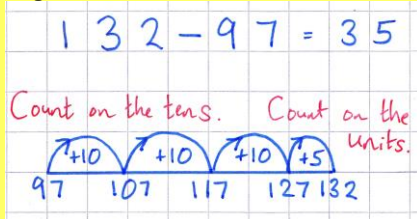 132-97=35
Count on the tens. Count on the units.
+10 +10 +10 +5
97 107 117 127 132